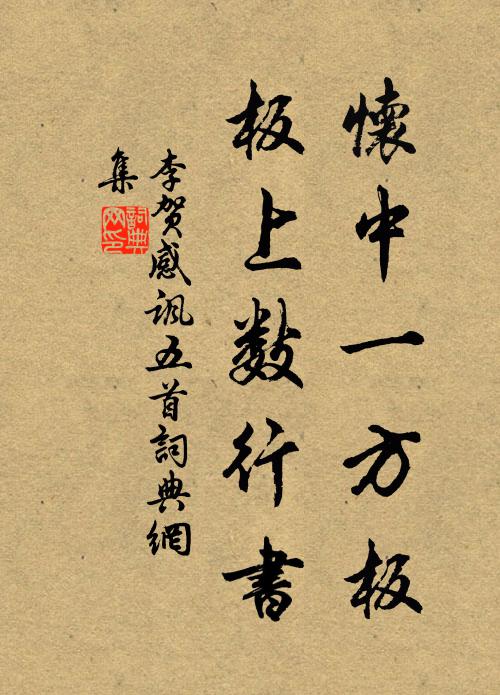 懷中一方板
板上数行書
李贺感諷五首詞典網
集
詞典
网印